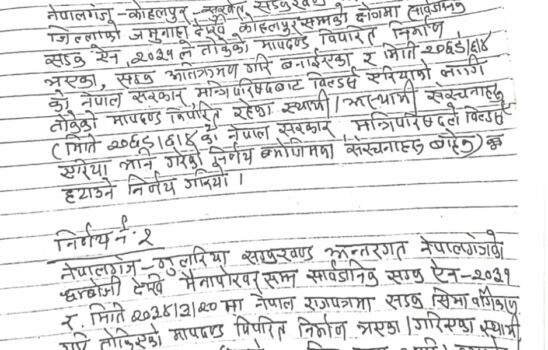 नेपालगञ्ज - कोहलपुर - सुर्खेत सडकखण्ड
जिल्लाको जमुनाहा देखि कोहलपुर सम्मको क्षेत्रमा सार्वजनिक
सडक ऐन, २०३१ ले तोकेको मापदण्ड विपरित निर्माण
भएका, सडक अतिक्रमण गरि बनाईएका र मिति २०६६/६/४
को नेपाल सरकार, मन्त्रिपरिषदबाट विल्डर्स एरियाको लागि
तोकेको मापदण्ड विपरित रहेका स्थायी / अस्थायी संरचनाहरु
(मिति २०६६/६/४ को नेपाल सरकार मन्त्रिपरिषदले विल्डर्स
एरिया भनि गरेको निर्णय बमोजिमका संरचनाहरु बाहेक)
हटाउने निर्णय गरियो ।
निर्णय नं. २
नेपालगंज - गुलरिया सडकखण्ड अन्तरगत नेपालगंजको
देखि मैनापोखर सम्म सार्वजनिक सडक ऐन - २०३१
र मिति २०३४/३/२० मा नेपाल राजपत्रमा सडक सिमा
गरि तोकिएको मापदण्ड विपरित निर्माण भएका / गरिएका स्थायी